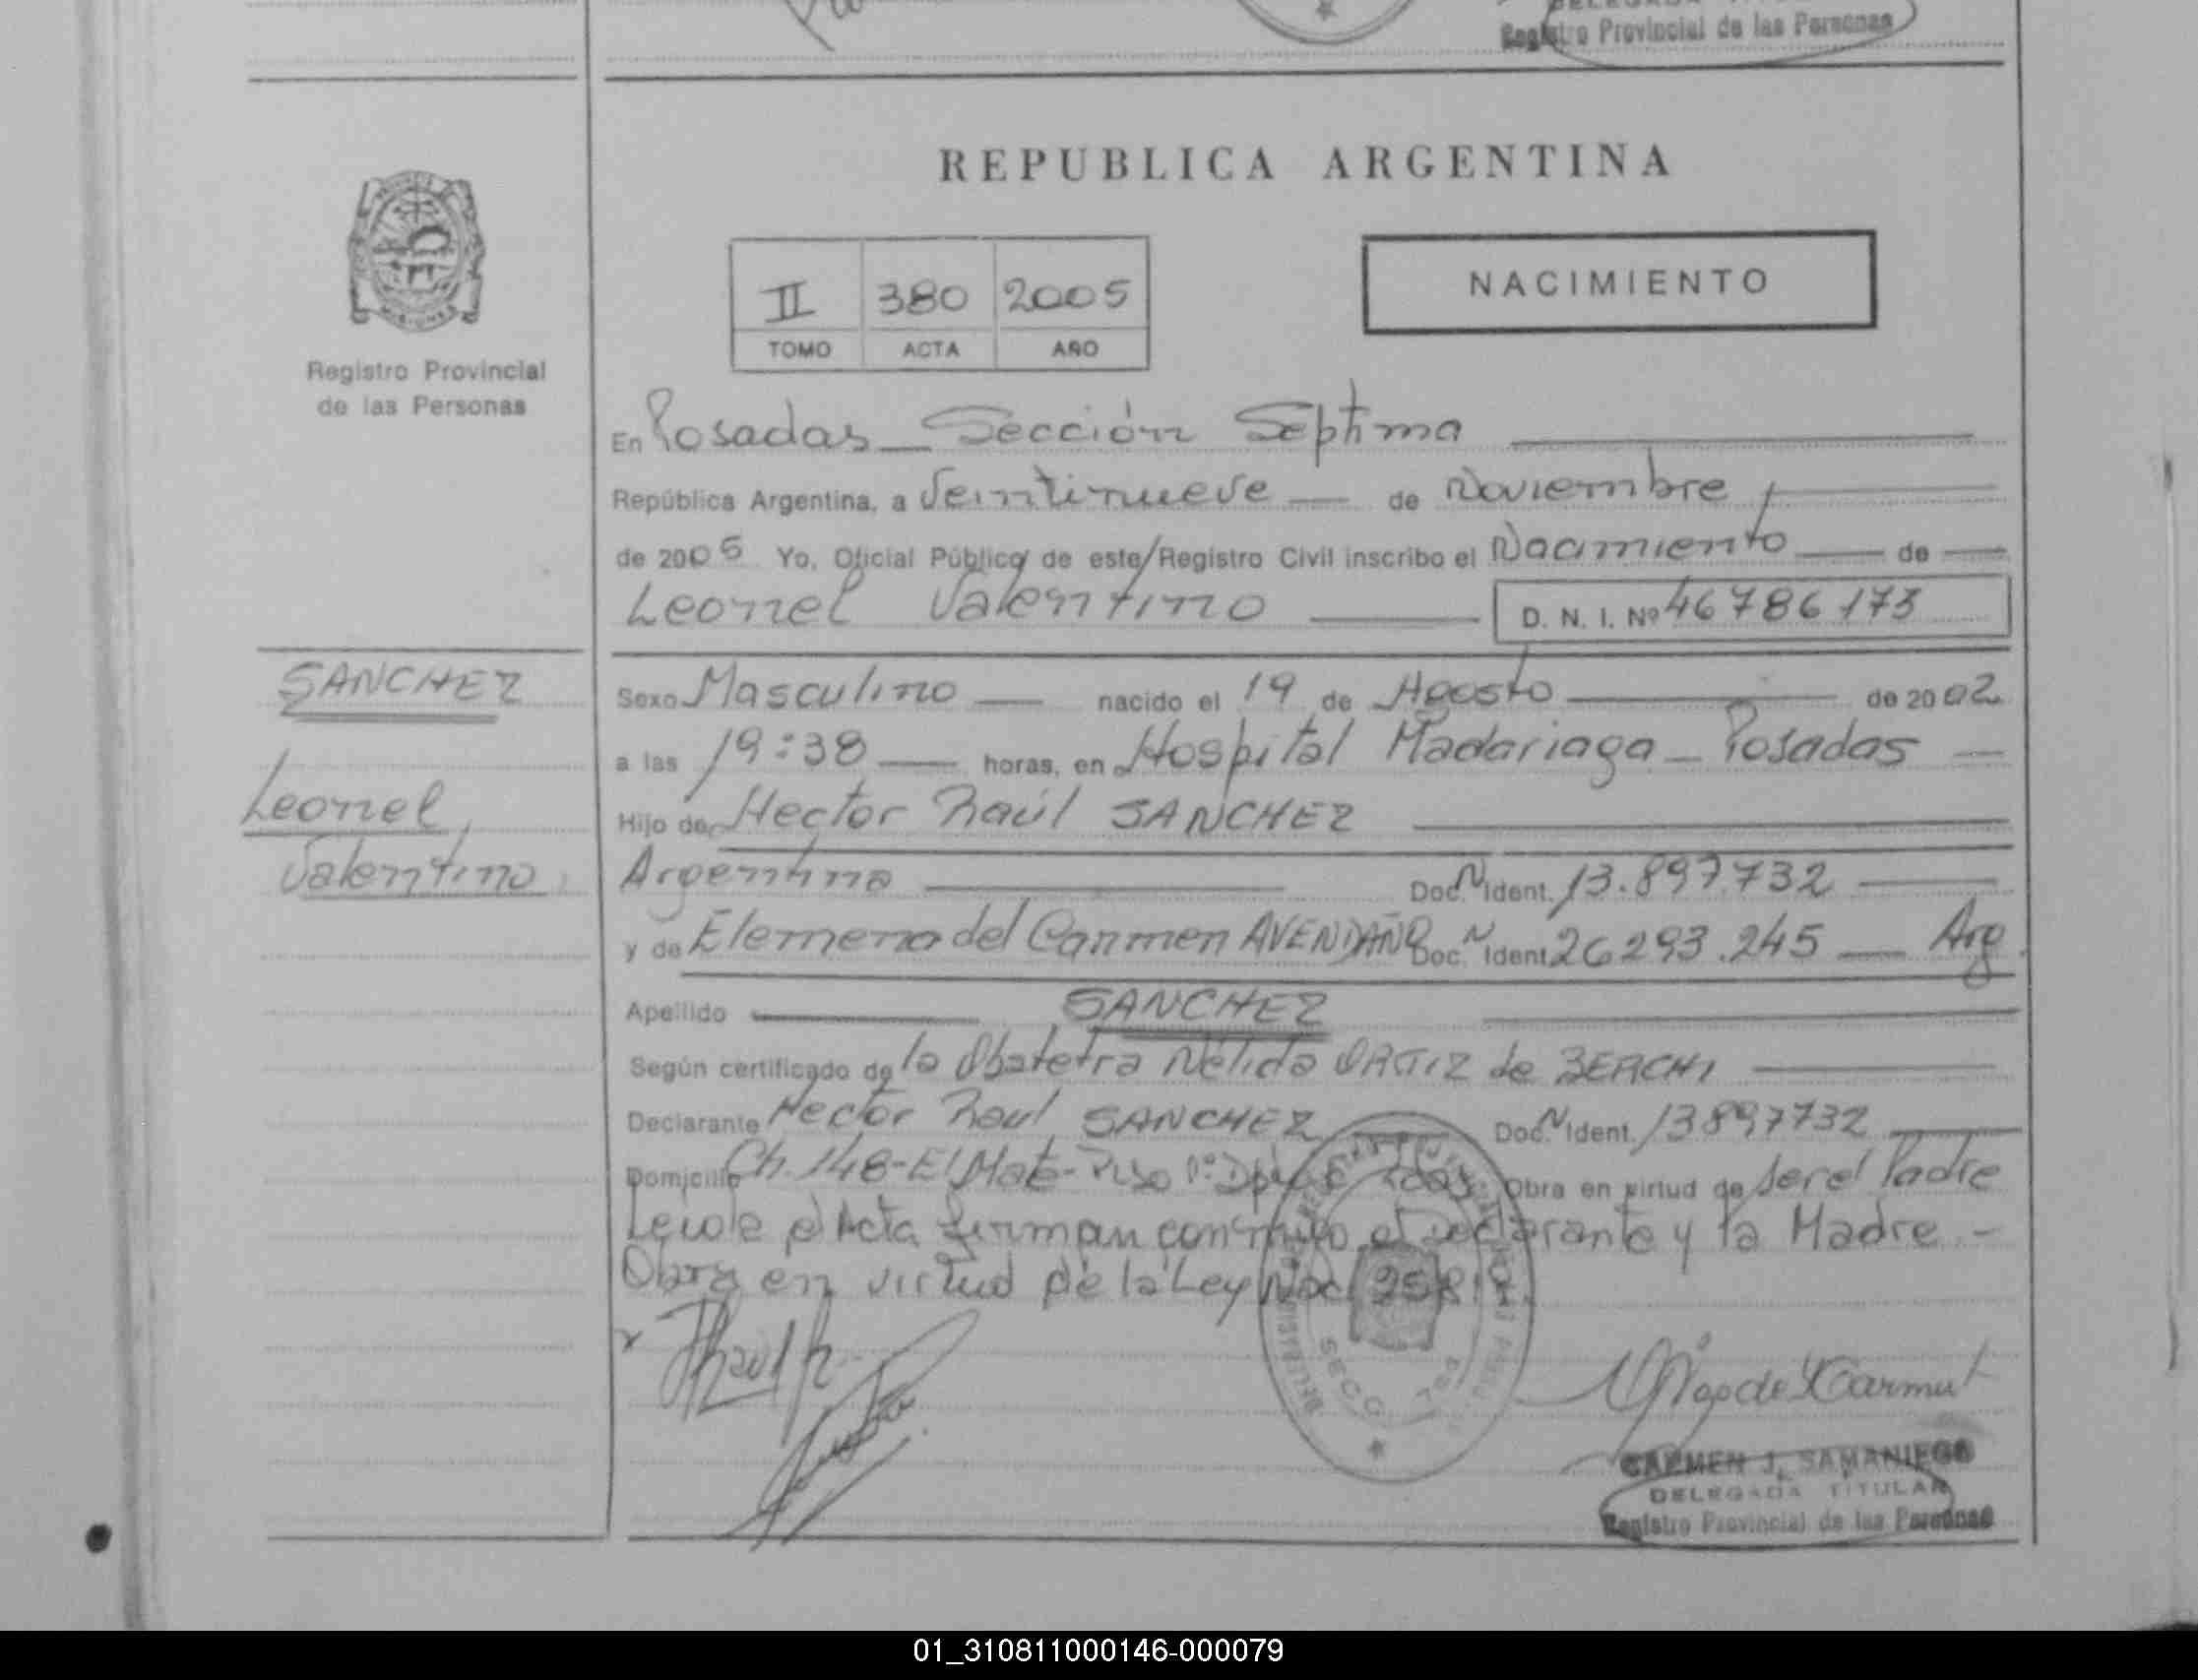 Registro Provincial de las Personas
REPUBLICA ARGENTINA
NACIMIENTO
II 380 2005
TOMO ACTA AÑO
Registro Provincial
de las Personas
En Posadas - Sección Septima
República Argentina, a Veintinueve de Noviembre
de 2005 Yo, Oficial Público de este Registro Civil inscribo el Nacimiento de
Leonel Valentino D. N. I. Nº 46786173
SANCHEZ
Leonel
Valentino
Sexo Masculino nacido el 19 de Agosto de 2002
a las 19:38 horas, en Hospital Madariaga - Posadas
Hijo de Hector Raúl SANCHEZ
Argentina Doc. N Ident. 13.897.732
y de Elemena del Carmen AVENDAÑO Doc. N Ident. 26293.245 Arg.
Apellido SANCHEZ
Según certificado de la Obstetra Nélida ORTIZ de BERCHI
Declarante Hector Raul SANCHEZ Doc. N Ident. 13897732
Domicilio Ch. 148 - El Mate - Piso 1º Obra en virtud de ser el Padre
Leida el Acta firman conmigo el Declarante y la Madre -
Obra en virtud de la Ley Nac
CARMEN J. SAMANIEGO
DELEGADA TITULAR
Registro Provincial de las Personas
01_310811000146-000079